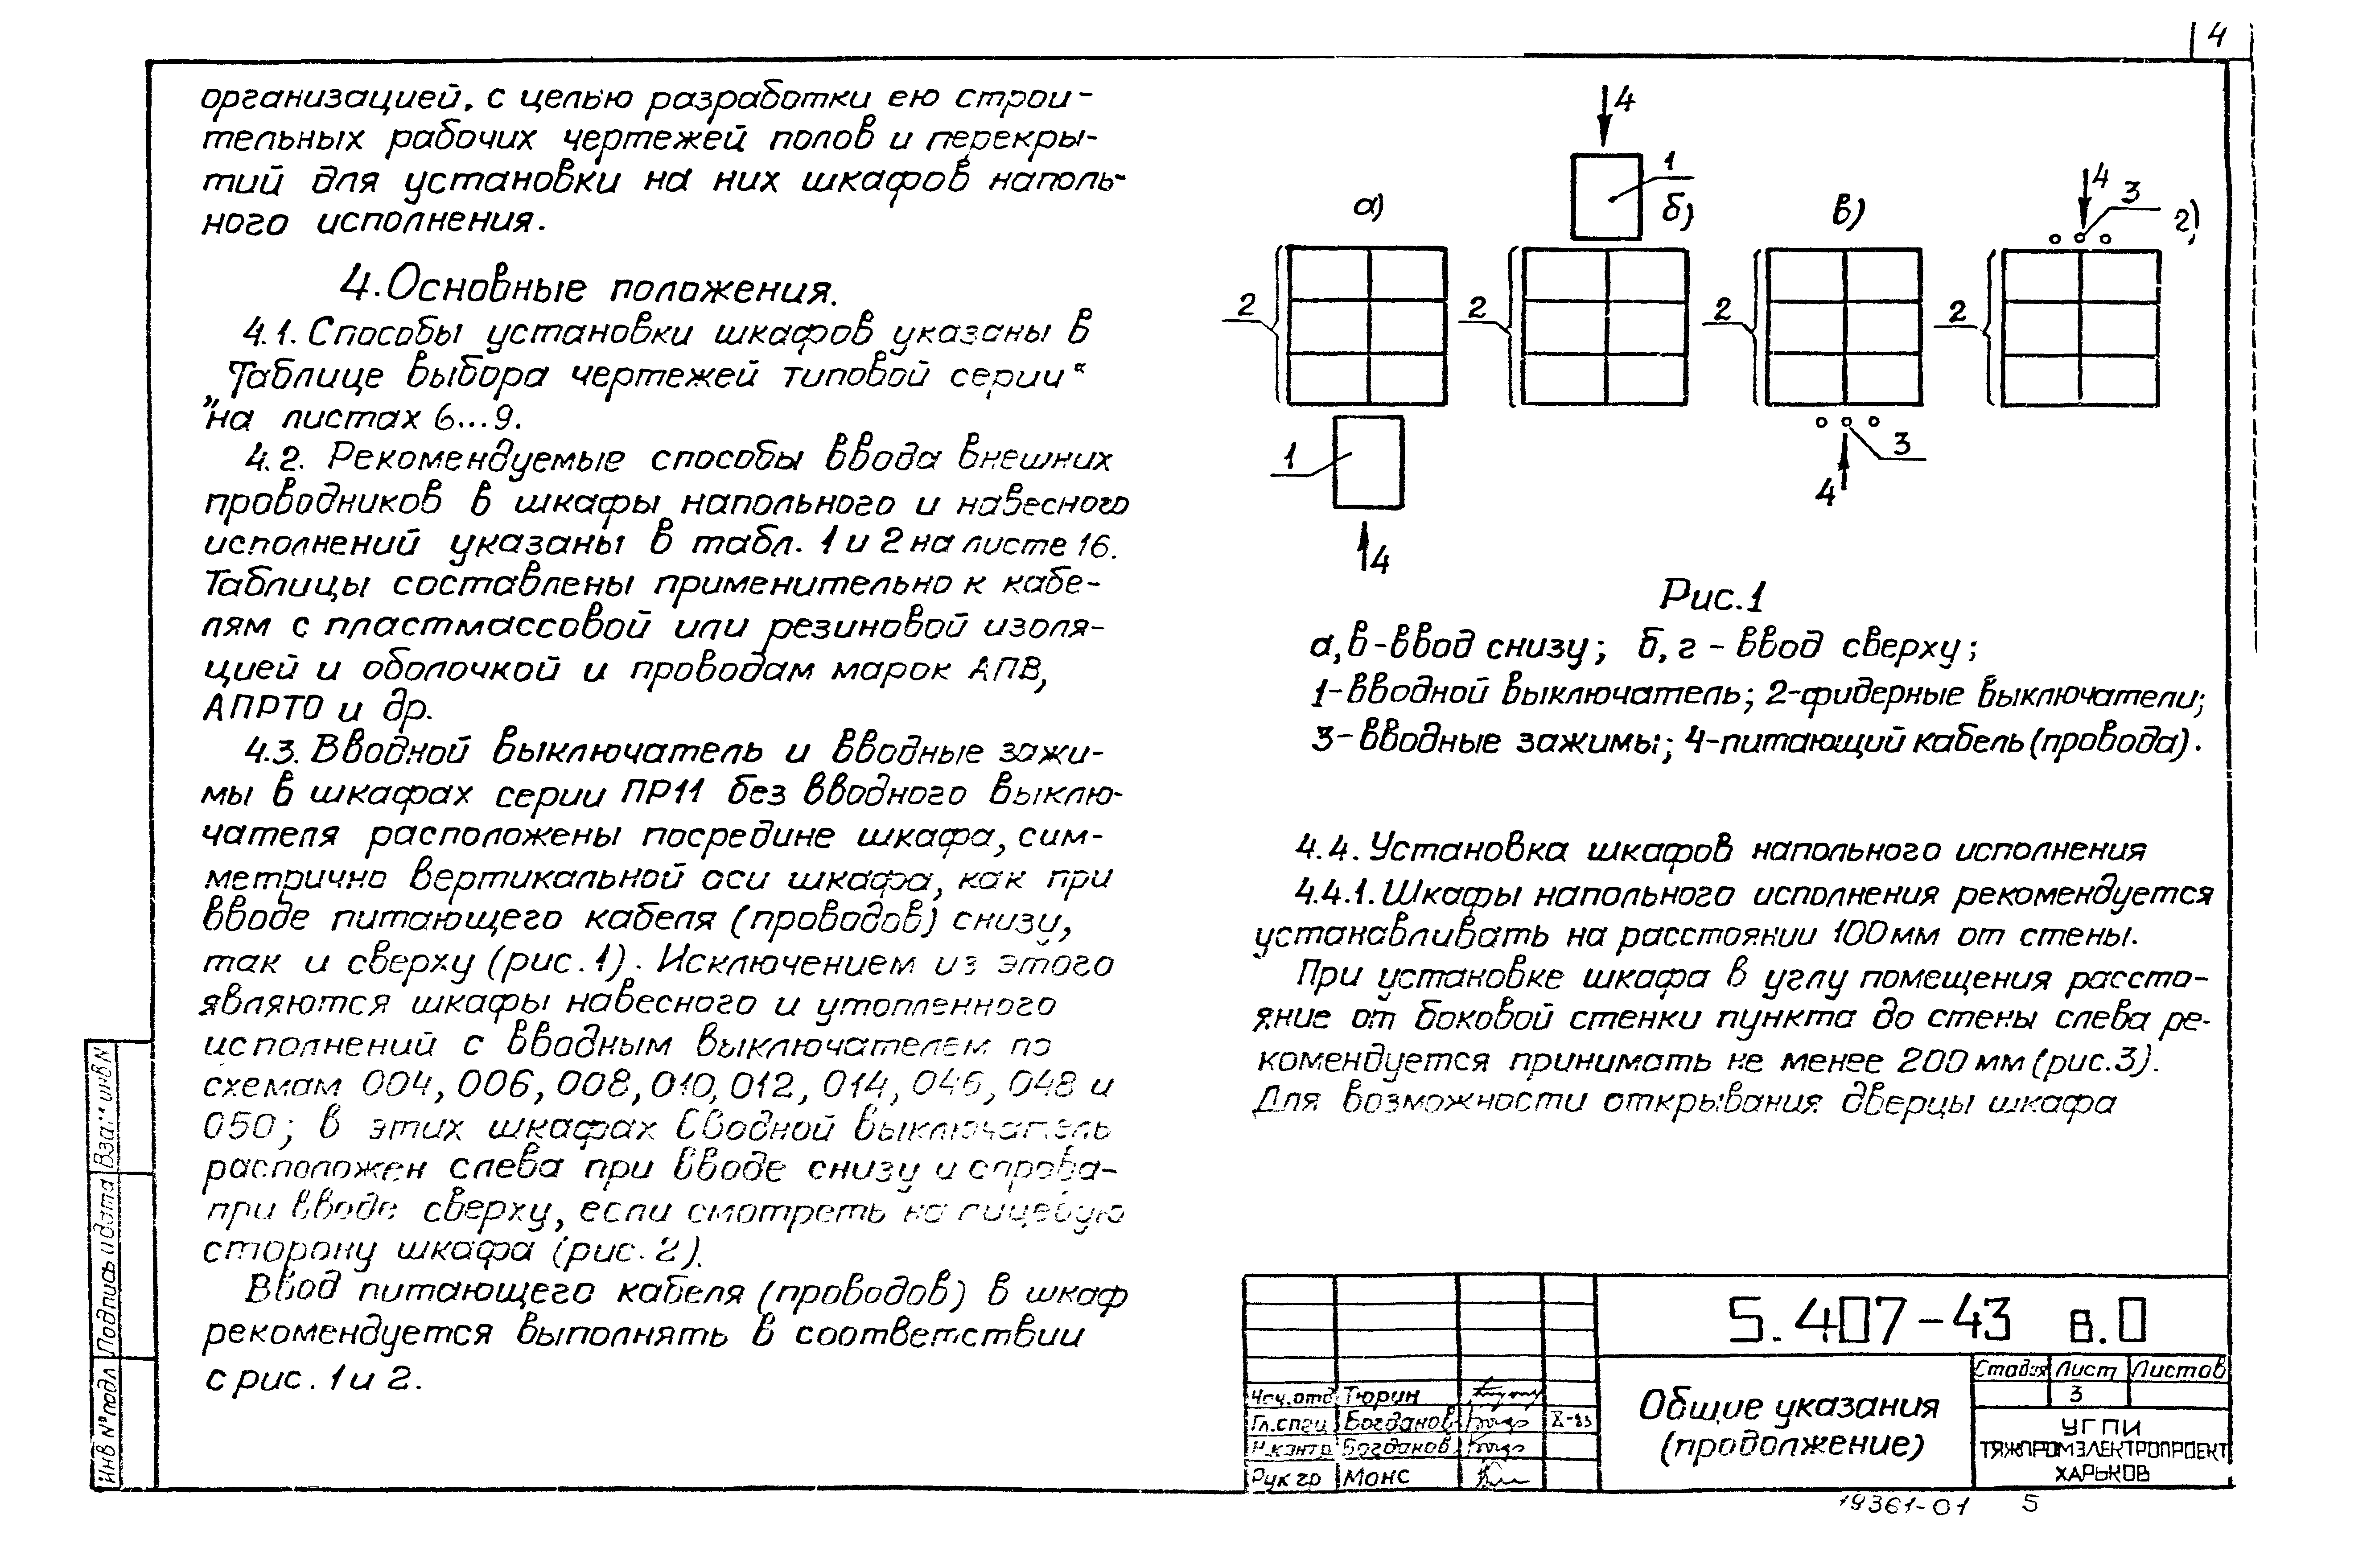 4
организацией, с целью разработки ею строи-
тельных рабочих чертежей полов и перекры-
тий для установки на них шкафов наполь-
ного исполнения.
4. Основные положения.
4.1. Способы установки шкафов указаны в
„Таблице выбора чертежей типовой серии“
на листах 6...9.
4.2. Рекомендуемые способы ввода внешних
проводников в шкафы напольного и навесного
исполнений указаны в табл. 1 и 2 на листе 16.
Таблицы составлены применительно к кабе-
лям с пластмассовой или резиновой изоля-
цией и оболочкой и проводам марок АПВ,
АПРТО и др.
4.3. Вводной выключатель и вводные зажи-
мы в шкафах серии ПР11 без вводного выклю-
чателя расположены посредине шкафа, сим-
метрично вертикальной оси шкафа, как при
вводе питающего кабеля (проводов) снизу,
так и сверху (рис. 1). Исключением из этого
являются шкафы навесного и утопленного
исполнений с вводным выключателем по
схемам 004, 006, 008, 010, 012, 014, 046, 048 и
050; в этих шкафах вводной выключатель
расположен слева при вводе снизу и справа-
при вводе сверху, если смотреть на лицевую
сторону шкафа (рис. 2).
Ввод питающего кабеля (проводов) в шкаф
рекомендуется выполнять в соответствии
с рис. 1 и 2.
а) б) в) г)
4 1 4 3
2 2 2 2
1 3
4 4
Рис. 1
а, в - ввод снизу; б, г - ввод сверху;
1- вводной выключатель; 2-фидерные выключатели;
3- вводные зажимы; 4-питающий кабель (провода).
4.4. Установка шкафов напольного исполнения
4.4.1. Шкафы напольного исполнения рекомендуется
устанавливать на расстоянии 100 мм от стены.
При установке шкафа в углу помещения расстo-
яние от боковой стенки пункта до стены слева ре-
комендуется принимать не менее 200 мм (рис. 3).
Для возможности открывания дверцы шкафа
5.407-43 в.0
Общие указания
(продолжение)
Стадия Лист Листов
3
УГПИ
ТЯЖПРОМЭЛЕКТРОПРОЕКТ
ХАРЬКОВ
Нач. отд Тюрин
Гл. спец Богданов X-83
Н.контр Богданов
Рук гр Монс
Инв № подл Подпись и дата Взам инв N
19361-01 5